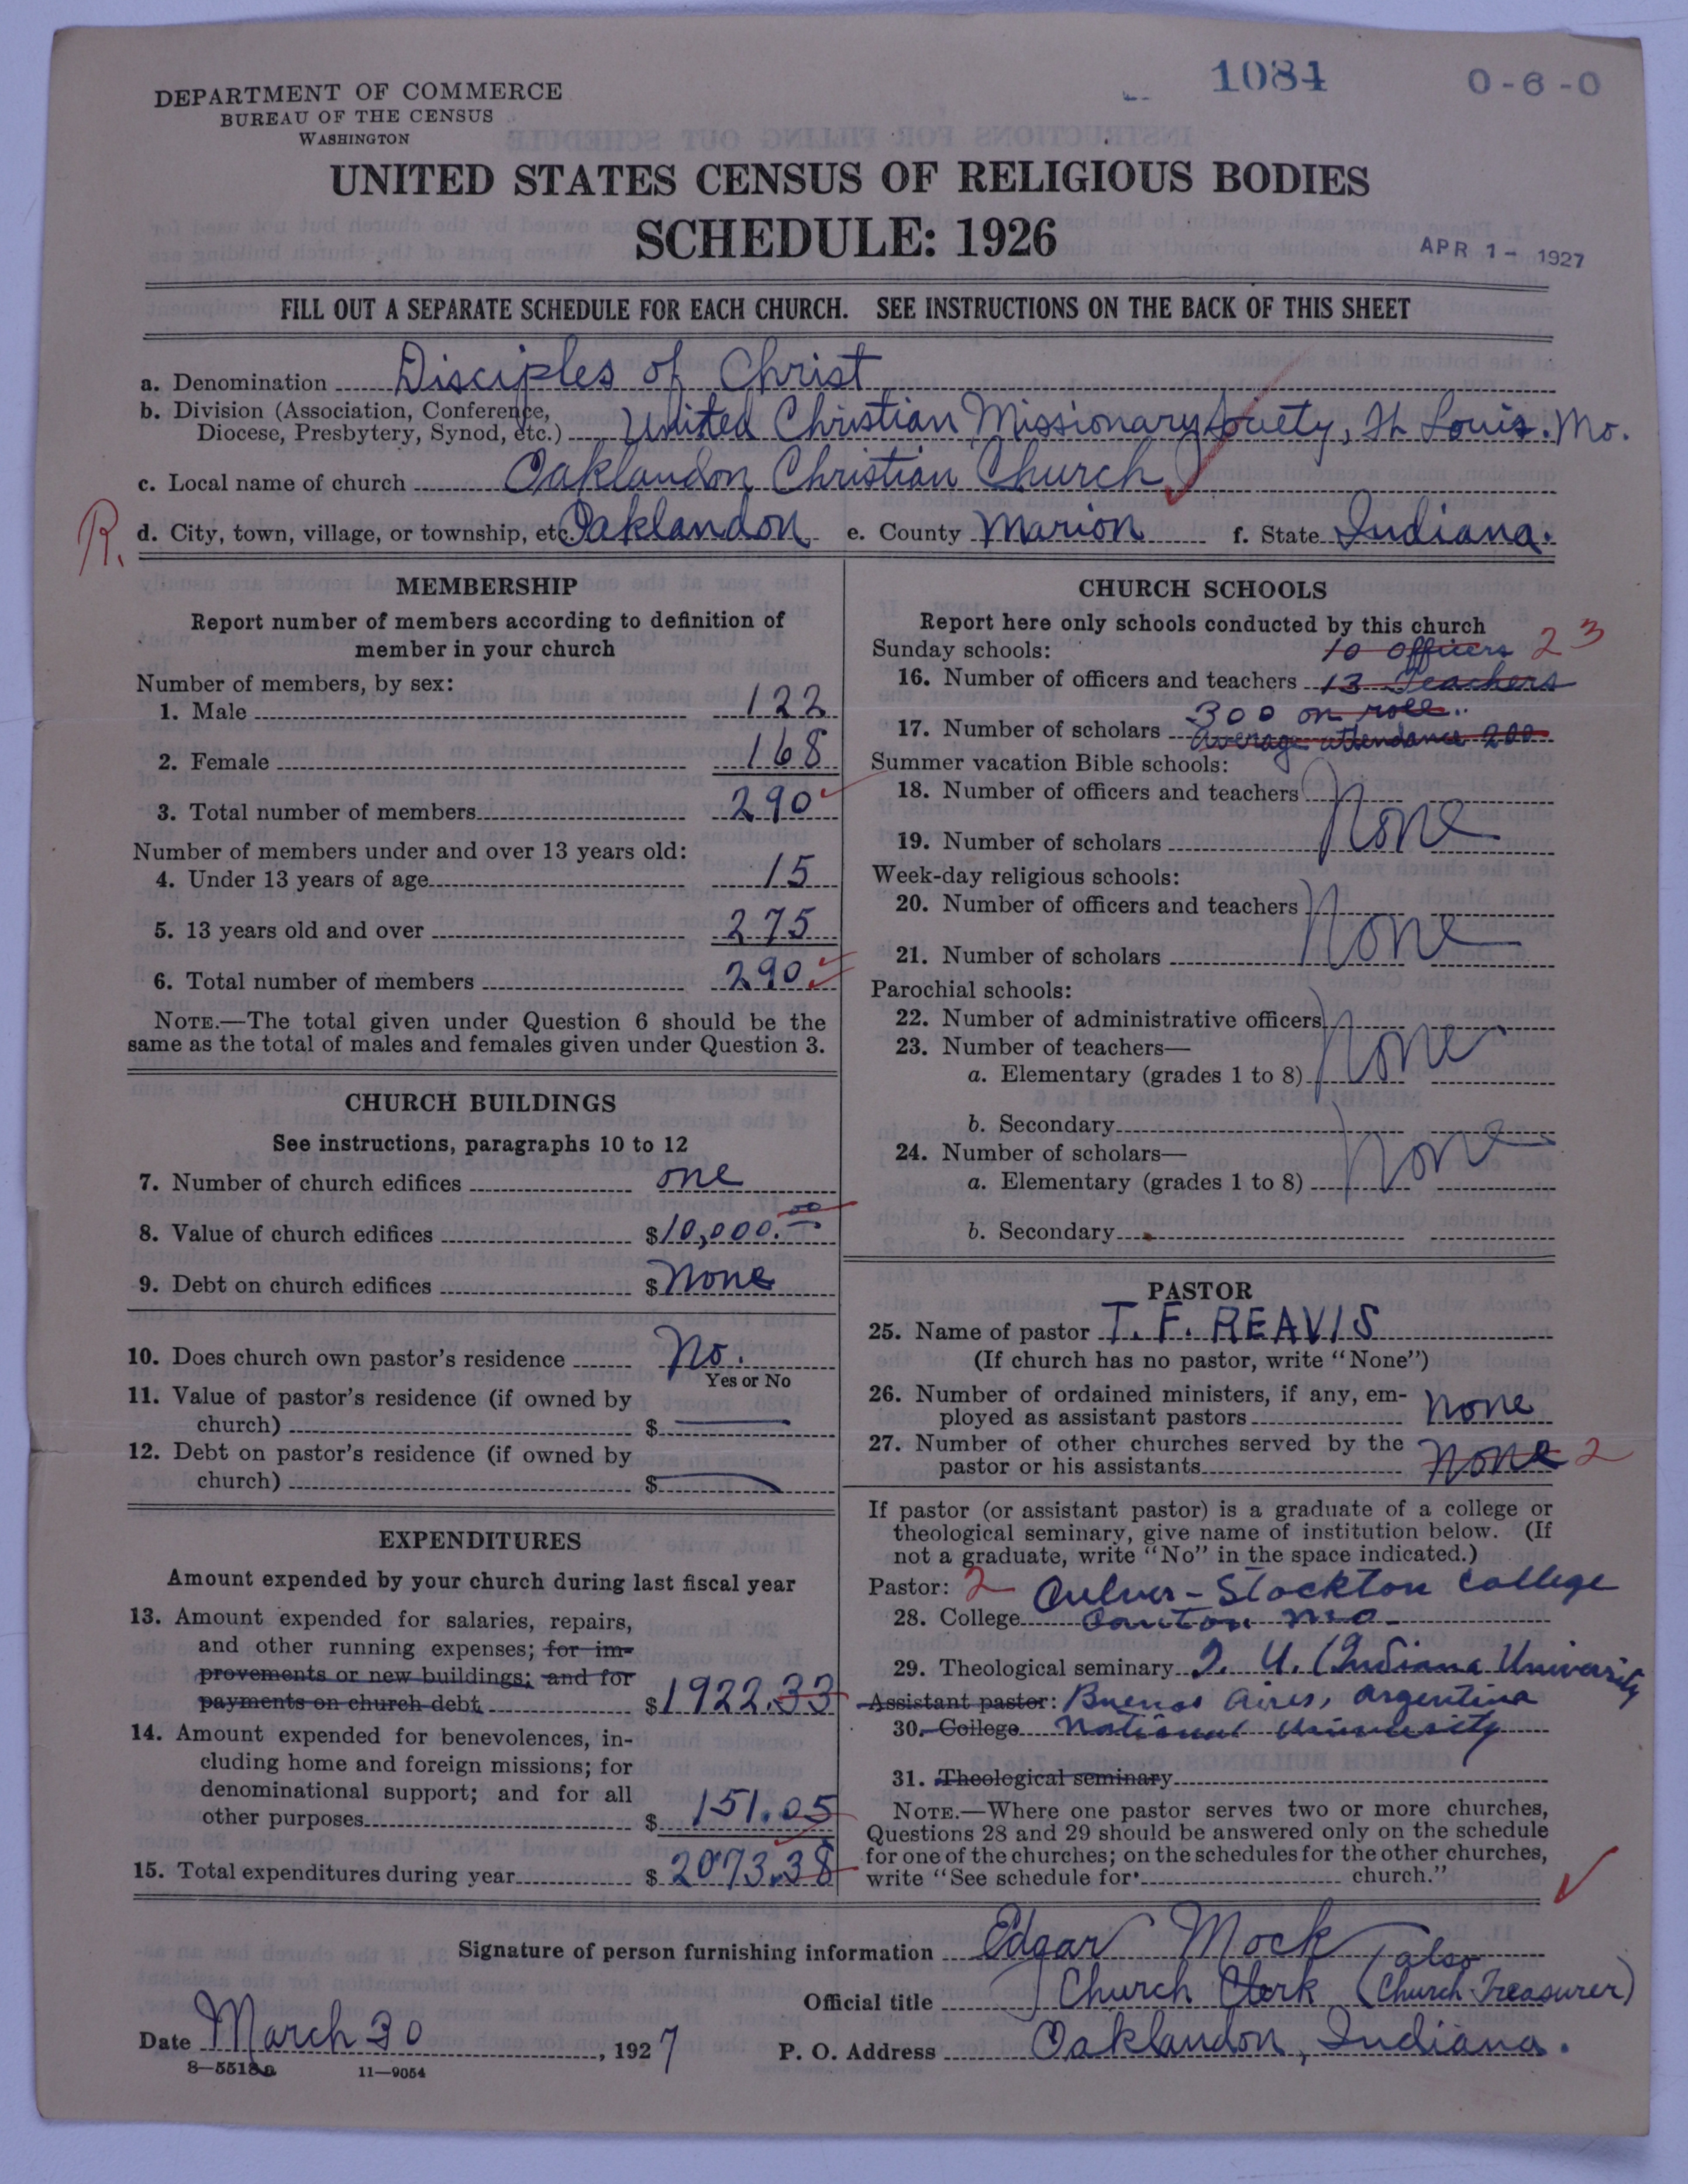 1084
0-6-0
DEPARTMENT OF COMMERCE
BUREAU OF THE CENSUS
WASHINGTON
UNITED STATES CENSUS OF RELIGIOUS BODIES
SCHEDULE: 1926
APR 1- 1927
FILL OUT A SEPARATE SCHEDULE FOR EACH CHURCH. SEE INSTRUCTIONS ON THE BACK OF THIS SHEET
a. Denomination Disciples of Christ
b. Division (Association, Conference,
Diocese, Presbytery, Synod, etc.) United Christian Missionary Society, St Louis. Mo.
c. Local name of church Oaklandon Christian Church
R. d. City, town, village, or township, etc. Oaklandon e. County Marion f. State Indiana.
MEMBERSHIP
Report number of members according to definition of
member in your church
Number of members, by sex:
1. Male 122
2. Female 168
3. Total number of members 290
Number of members under and over 13 years old:
4. Under 13 years of age 15
5. 13 years old and over 275
6. Total number of members 290
NOTE.—The total given under Question 6 should be the
same as the total of males and females given under Question 3.
CHURCH BUILDINGS
See instructions, paragraphs 10 to 12
7. Number of church edifices one
8. Value of church edifices $10,000.00
9. Debt on church edifices $ None
10. Does church own pastor's residence No.
Yes or No
11. Value of pastor's residence (if owned by
church) $ ——
12. Debt on pastor's residence (if owned by
church) $ ——
EXPENDITURES
Amount expended by your church during last fiscal year
13. Amount expended for salaries, repairs,
and other running expenses; for im-
provements or new buildings; and for
payments on church debt $1922.33
14. Amount expended for benevolences, in-
cluding home and foreign missions; for
denominational support; and for all
other purposes $ 151.05
15. Total expenditures during year $ 2073.38
CHURCH SCHOOLS
Report here only schools conducted by this church
Sunday schools: 10 officers 23
16. Number of officers and teachers 13 Teachers
300 on roll..
17. Number of scholars average attendance 200
Summer vacation Bible schools:
18. Number of officers and teachers
None
19. Number of scholars
Week-day religious schools:
20. Number of officers and teachers
None
21. Number of scholars
Parochial schools:
22. Number of administrative officers
23. Number of teachers— None
a. Elementary (grades 1 to 8)
b. Secondary
24. Number of scholars— None
a. Elementary (grades 1 to 8)
b. Secondary
PASTOR
25. Name of pastor T. F. REAVIS
(If church has no pastor, write "None")
26. Number of ordained ministers, if any, em-
ployed as assistant pastors None
27. Number of other churches served by the
pastor or his assistants None 2
If pastor (or assistant pastor) is a graduate of a college or
theological seminary, give name of institution below. (If
not a graduate, write "No" in the space indicated.)
Pastor: 2 Culver-Stockton College
28. College Canton Mo-
29. Theological seminary I. U. (Indiana University
Assistant pastor: Buenos Aires, Argentina
30. College National University
31. Theological seminary
NOTE.—Where one pastor serves two or more churches,
Questions 28 and 29 should be answered only on the schedule
for one of the churches; on the schedules for the other churches,
write "See schedule for church."
Signature of person furnishing information Edgar Mock
also
Official title Church Clerk (Church Treasurer)
Date March 30, 1927 P. O. Address Oaklandon, Indiana.
8—5518a 11—9054